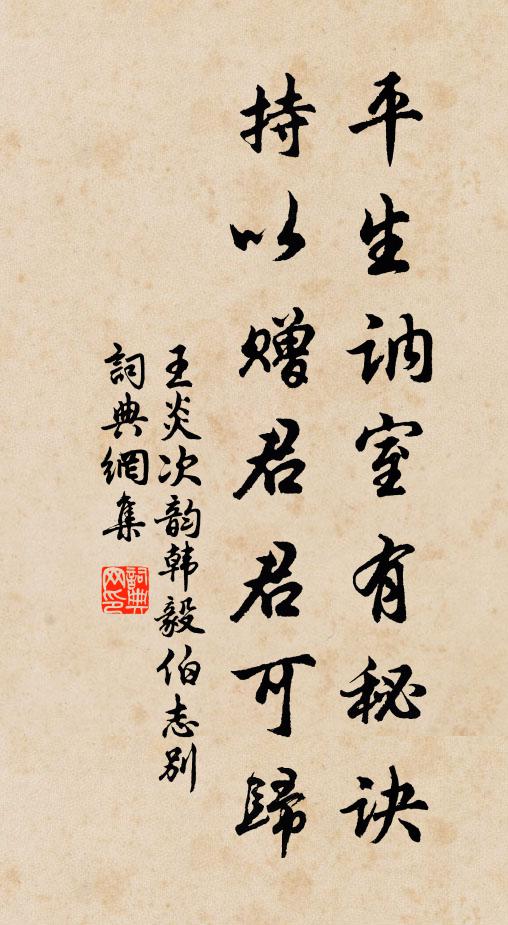 平生訥室有秘訣
持以贈君君可歸
王炎次韵韩毅伯志别
詞典網集
詞典网印